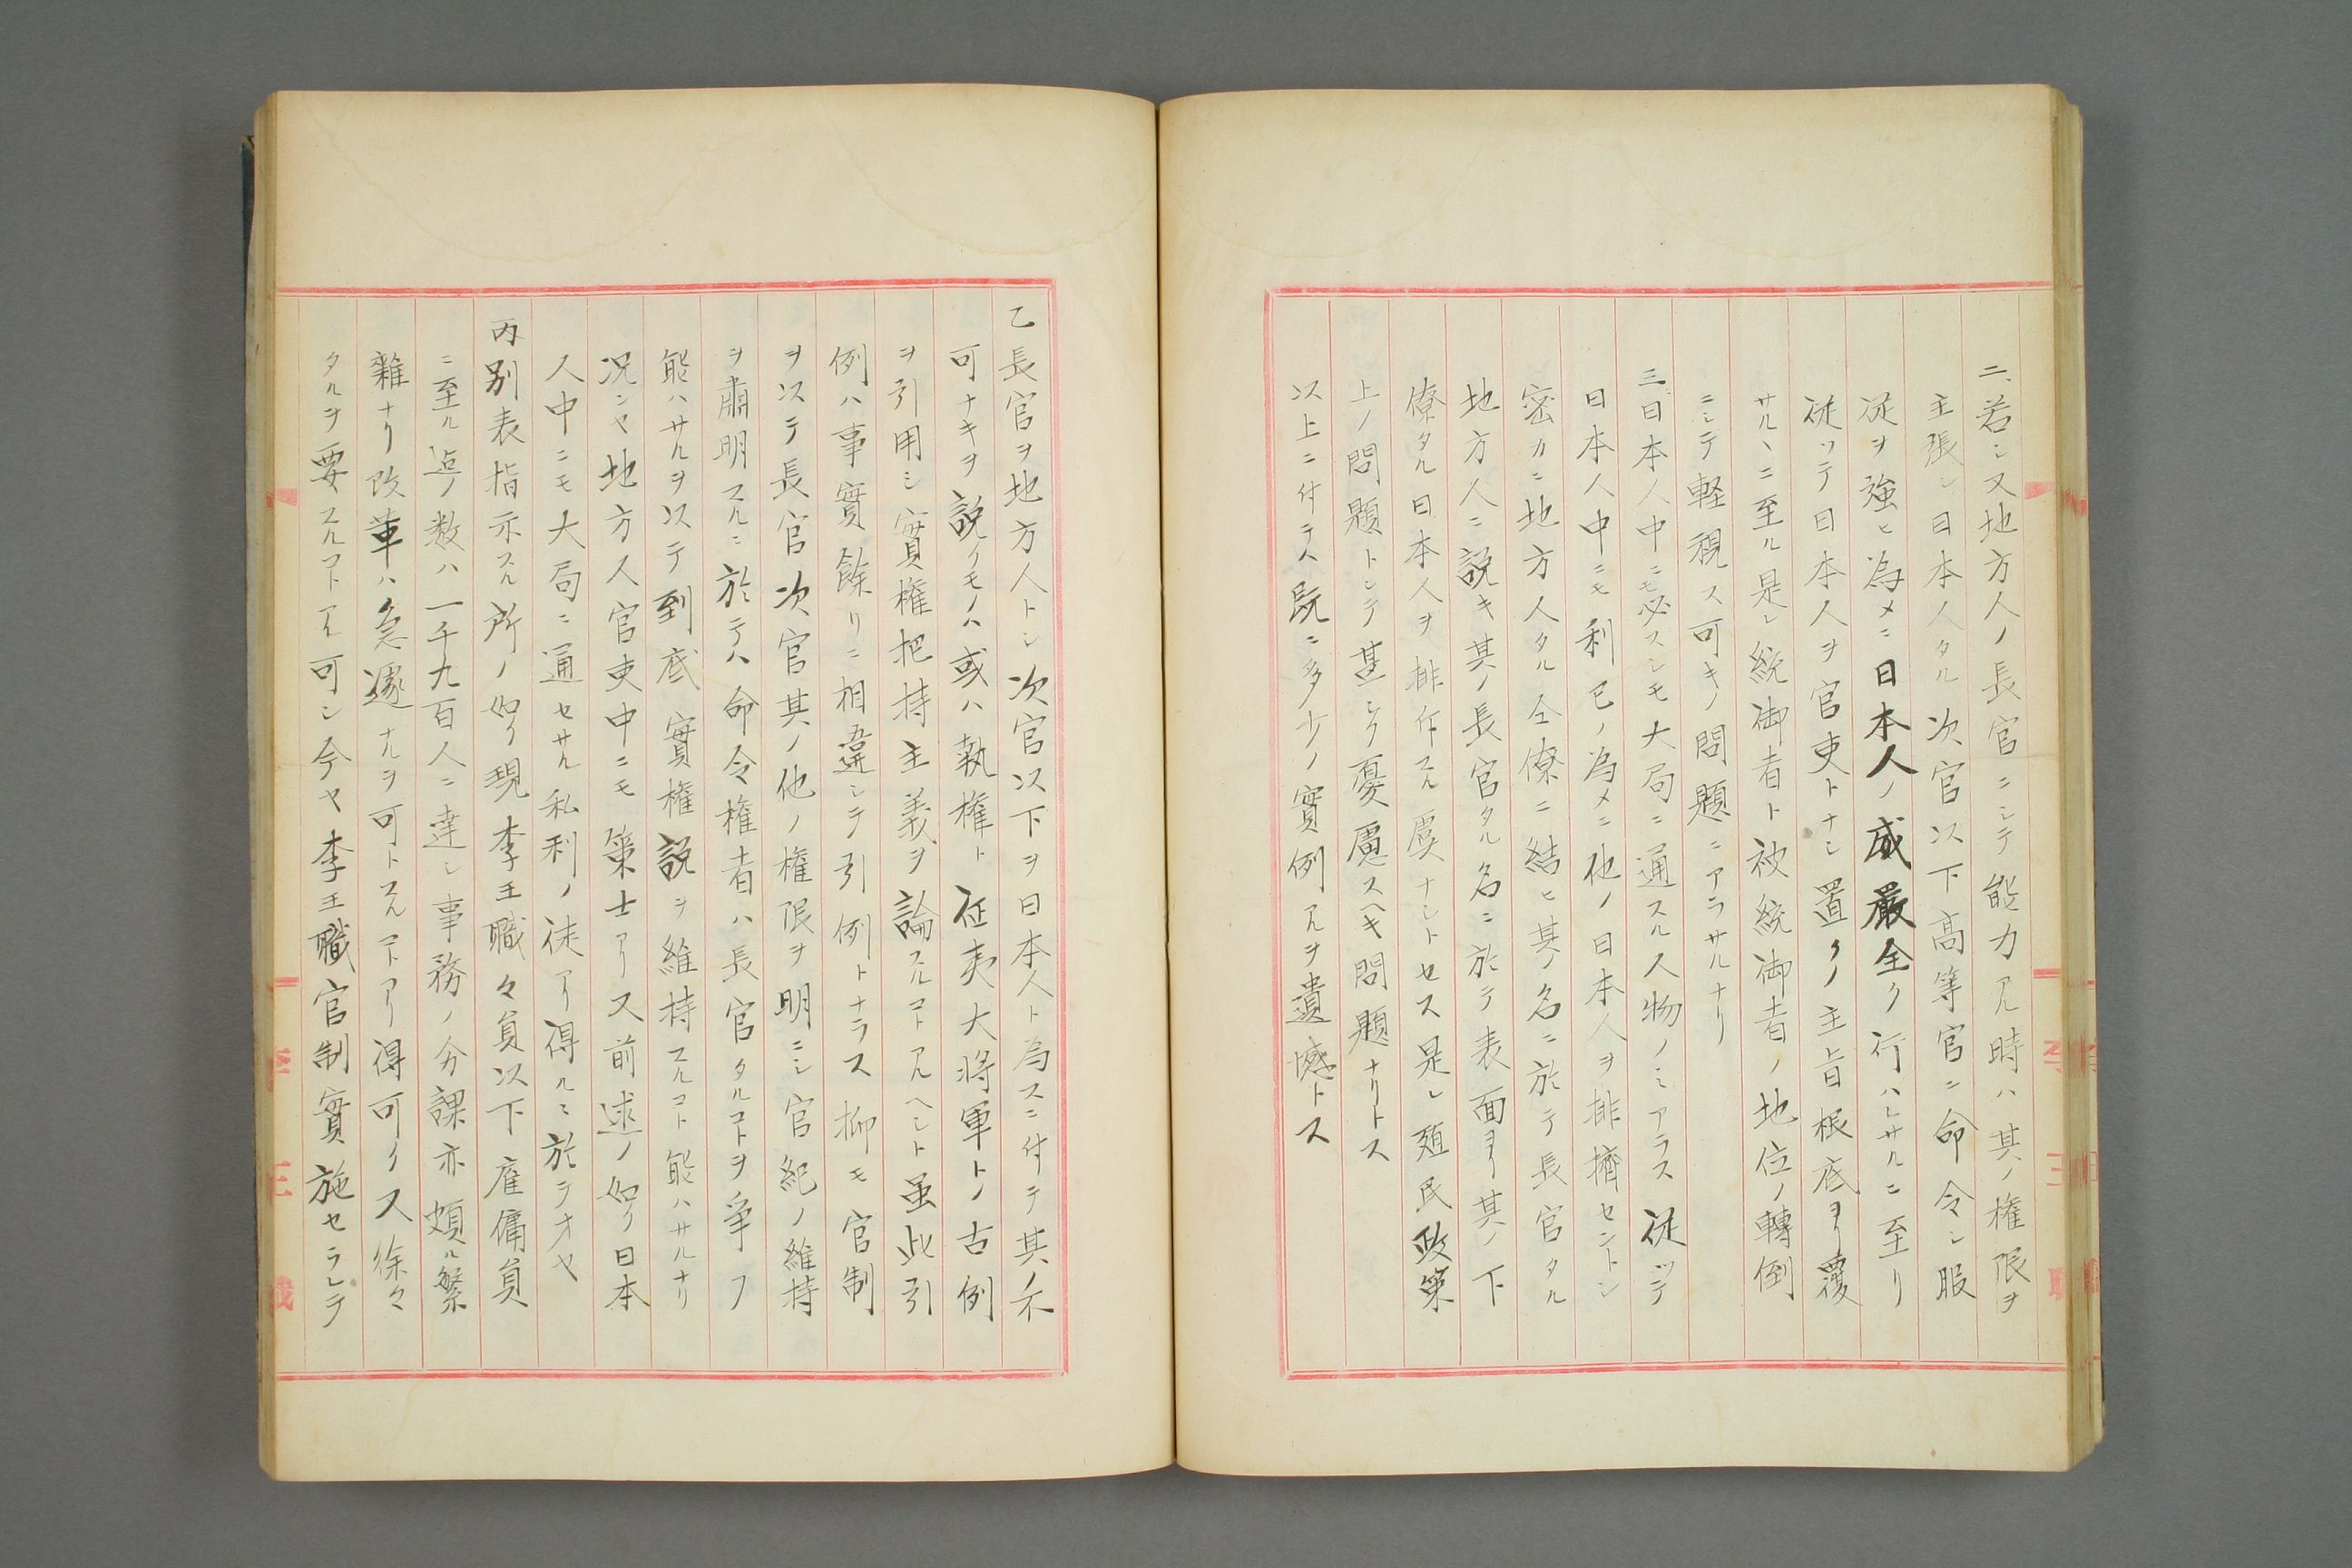 二、若シ又地方人ノ長官ニシテ能力アル時ハ其ノ権限ヲ
主張シ日本人タル次官以下高等官ニ命令シ服
従ヲ強ヒ為メニ日本人ノ威厳全ク行ハレサルニ至リ
従ツテ日本人ヲ官吏トナシ置クノ主旨根底ヨリ覆
サルヽニ至ル是レ統御者ト被統御者ノ地位ノ轉倒
ニシテ軽視ス可キノ問題ニアラサルナリ
三、日本人中ニモ必スシモ大局ニ通スル人物ノミアラス従ッテ
日本人中ニモ利己ノ為メニ他ノ日本人ヲ排擠セントシ
密カニ地方人タル仝僚ニ結ヒ其ノ名ニ於テ長官タル
地方人ニ説キ其ノ長官タル名ニ於テ表面ヨリ其ノ下
僚タル日本人ヲ排斥スル虞ナシトセス是レ殖民政策
上ノ問題トシテ甚シク憂慮スヘキ問題ナリトス
以上ニ付テハ既ニ多少ノ實例アルヲ遺憾トス
乙長官ヲ地方人トシ次官以下ヲ日本人ト為スニ付テ其ノ不
可ナキヲ説クモノハ或ハ執権ト征夷大将軍トノ古例
ヲ引用シ實権把持主義ヲ論スルコトアルヘシト虽此引
例ハ事實餘リニ相違シテ引例トナラス抑モ官制
ヲ以テ長官次官其ノ他ノ権限ヲ明ニシ官紀ノ維持
ヲ粛明スルニ於テハ命令権者ハ長官タルコトヲ爭フ
能ハサルヲ以テ到底實権説ヲ維持スルコト能ハサルナリ
况ンヤ地方人官吏中ニモ策士アリ又前述ノ如ク日本
人中ニモ大局ニ通セサル私利ノ徒アリ得ルニ於テオヤ
丙別表指示スル所ノ如ク現李王職々員以下雇傭員
ニ至ル迠ノ数ハ一千九百人ニ達シ事務ノ分課亦頗ル繁
雜ナリ改革ハ急遽ナルヲ可トスルコトアリ得可ク又徐々
タルヲ要スルコトアル可シ今ヤ李王職官制實施セラレテ